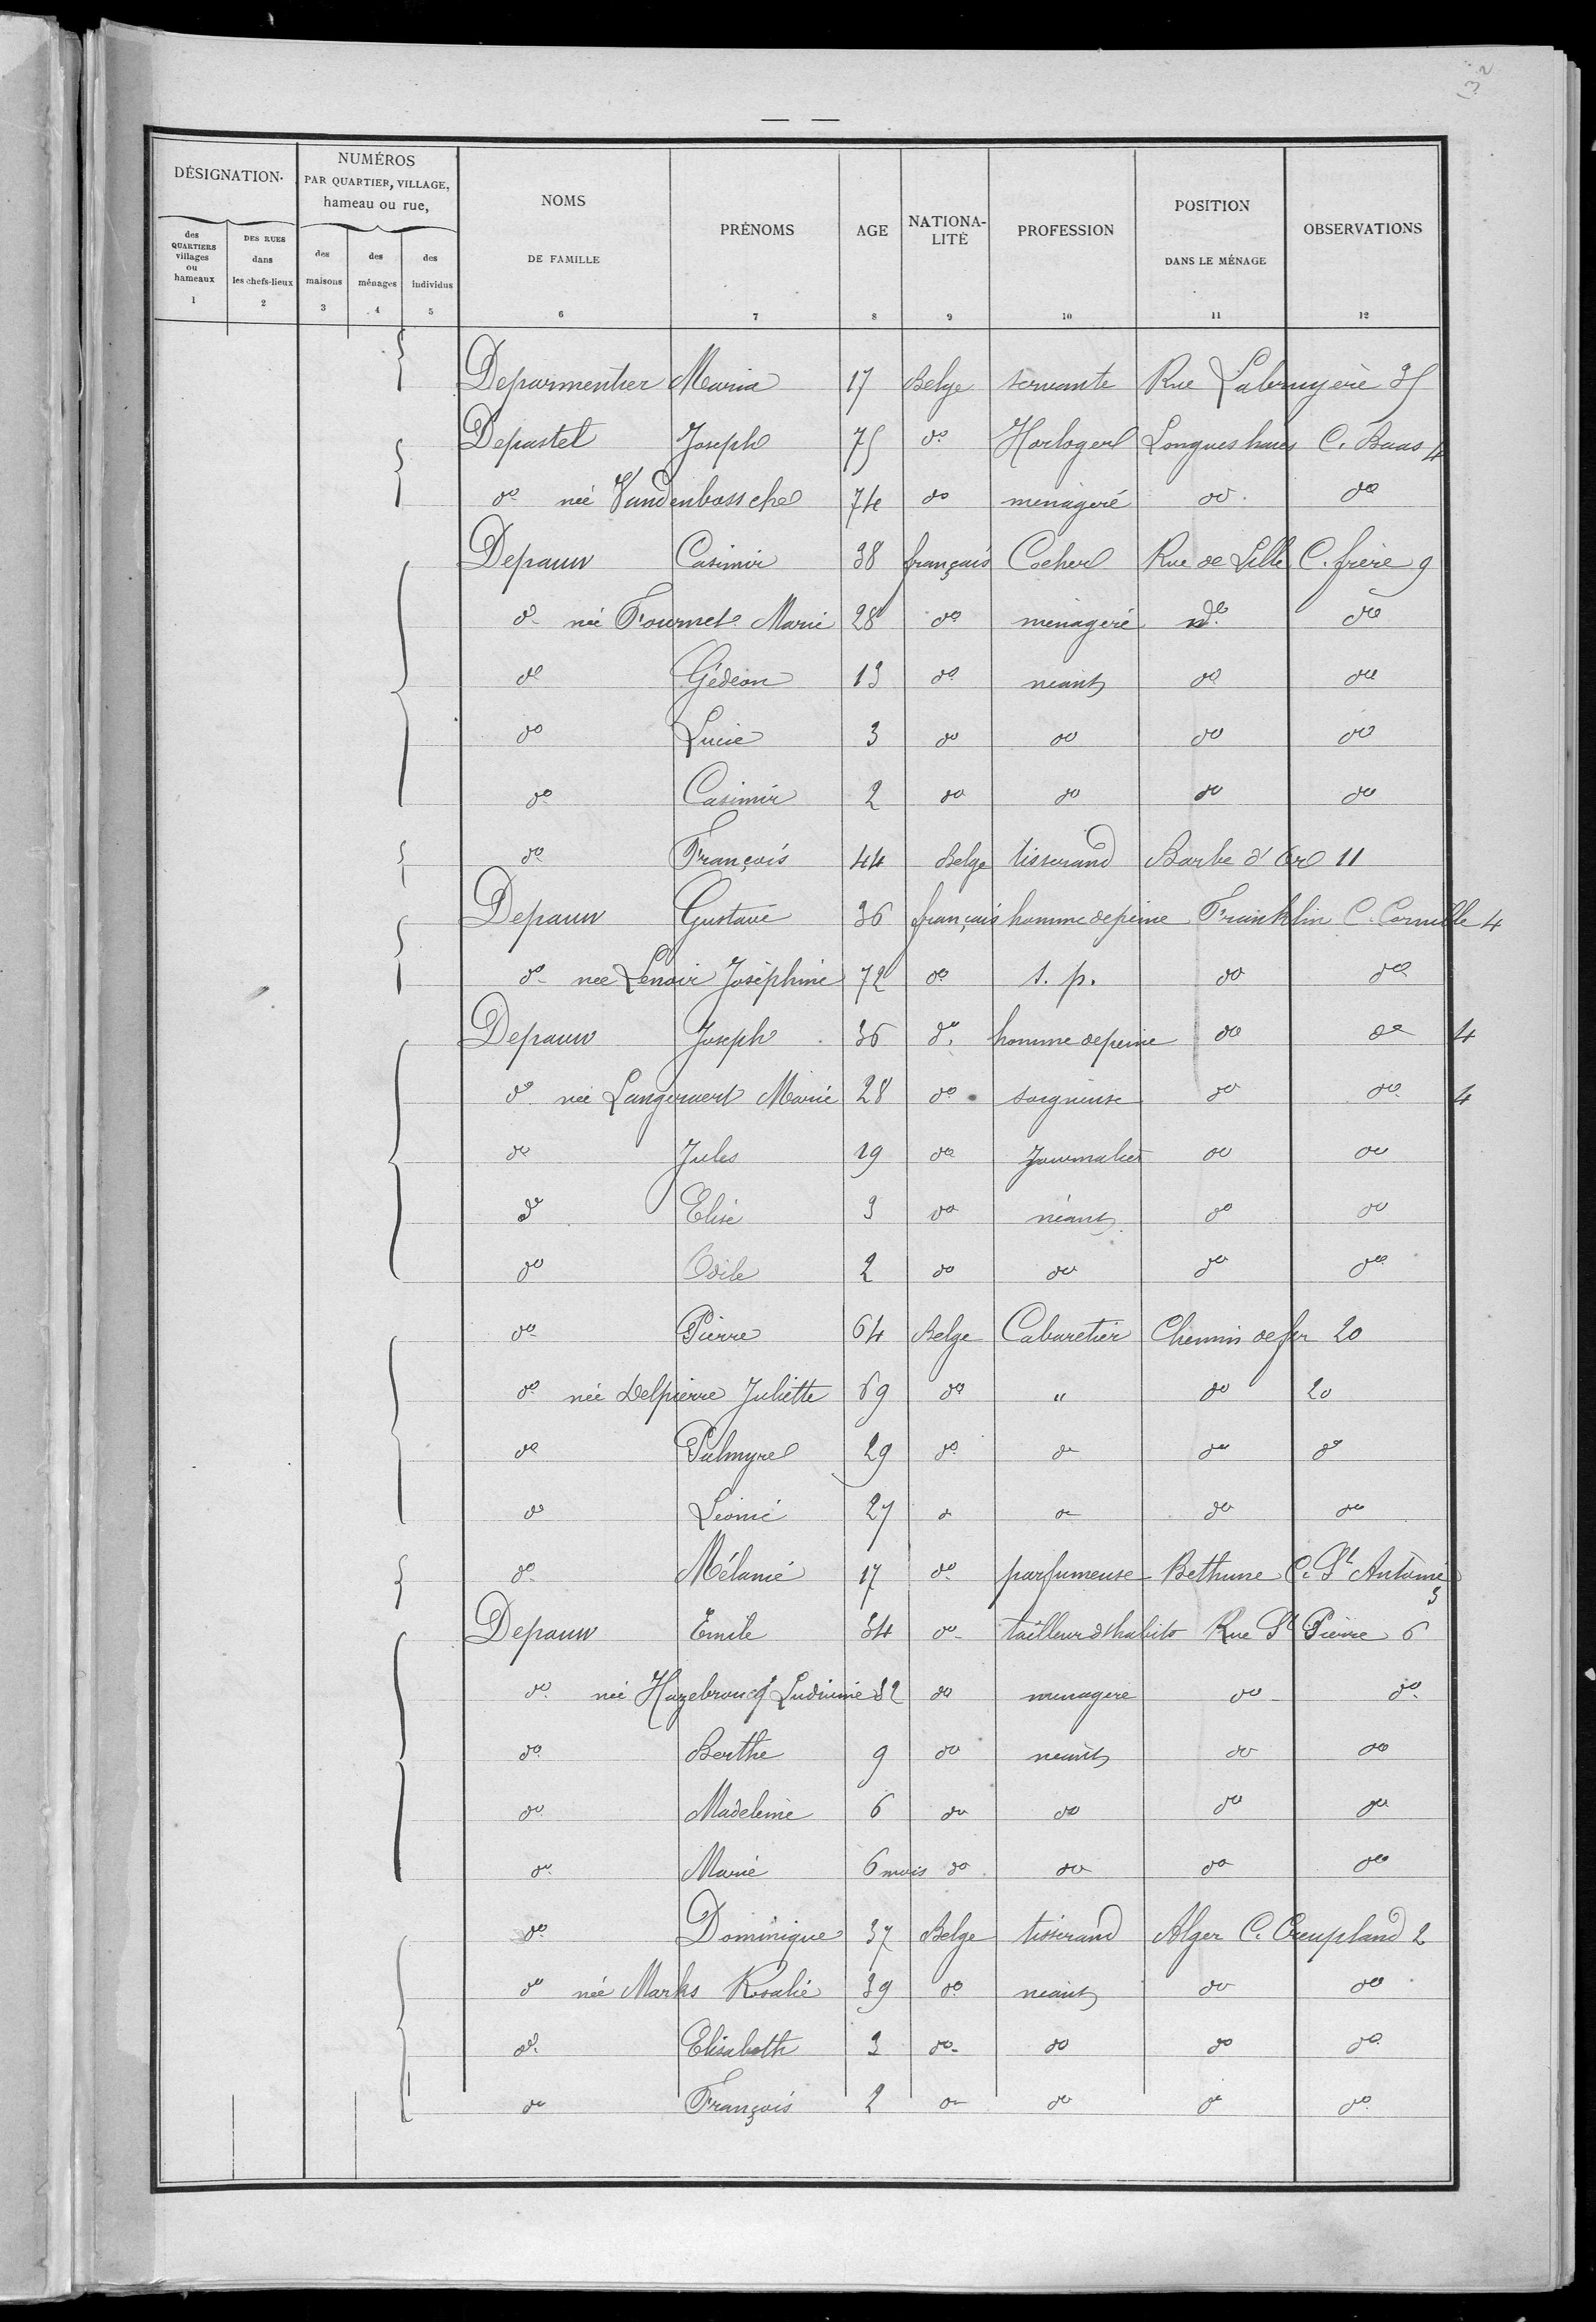 132
— —
DÉSIGNATION. NUMÉROS PAR QUARTIER, VILLAGE, hameau ou rue, NOMS DE FAMILLE PRÉNOMS AGE NATIONALITÉ PROFESSION POSITION DANS LE MÉNAGE OBSERVATIONS
des QUARTIERS villages ou hameaux DES RUES dans les chefs-lieux des maisons des ménages des individus
1 2 3 4 5 6 7 8 9 10 11 12
Deparmentier Maria 17 Belge servante Rue Labruyère 35
Depastel Joseph 75 do Horloger Longues haies C. Baas 4
do née Vandenbossche 74 do menageré do do
Depauw Casimir 38 français Cocher Rue de Lille C. frère 9
do née Fournet Marie 28 do menageré do do
do Gédeon 13 do néant do do
do Lucie 3 do do do do
do Casimir 2 do do do do
do François 44 Belge tisserand Barbe d'Or 11
Depauw Gustave 36 français homme de peine Franklin C. Cornille 4
do née Lenoir Joséphine 72 do s. p. do do
Depauw Joseph 36 do homme de peine do do 4
do née Langeraert Marie 28 do soigneuse do do 4
do Jules 19 do Journalier do do
do Elise 3 do néant do do
do Odile 2 do do do do
do Pierre 64 Belge Cabaretier Chemin de fer 20
do née Delpierre Juliette 69 do " do 20
do Palmyre 29 do do do do
do Léonie 27 do do do do
do Mélanie 17 do parfumeuse Bethune C. St Antoine 3
Depauw Emile 34 do tailleur d'habits Rue St Pierre 6
do née Hazebroucq Ludivine 32 do menagere do do
do Berthe 9 do néant do do
do Madeleine 6 do do do do
do Marie 6 mois do do do do
do Dominique 37 Belge tisserand Alger C. Creupland 2
do née Marks Rosalie 39 do néant do do
do Elisabeth 3 do do do do
do François 2 do do do do